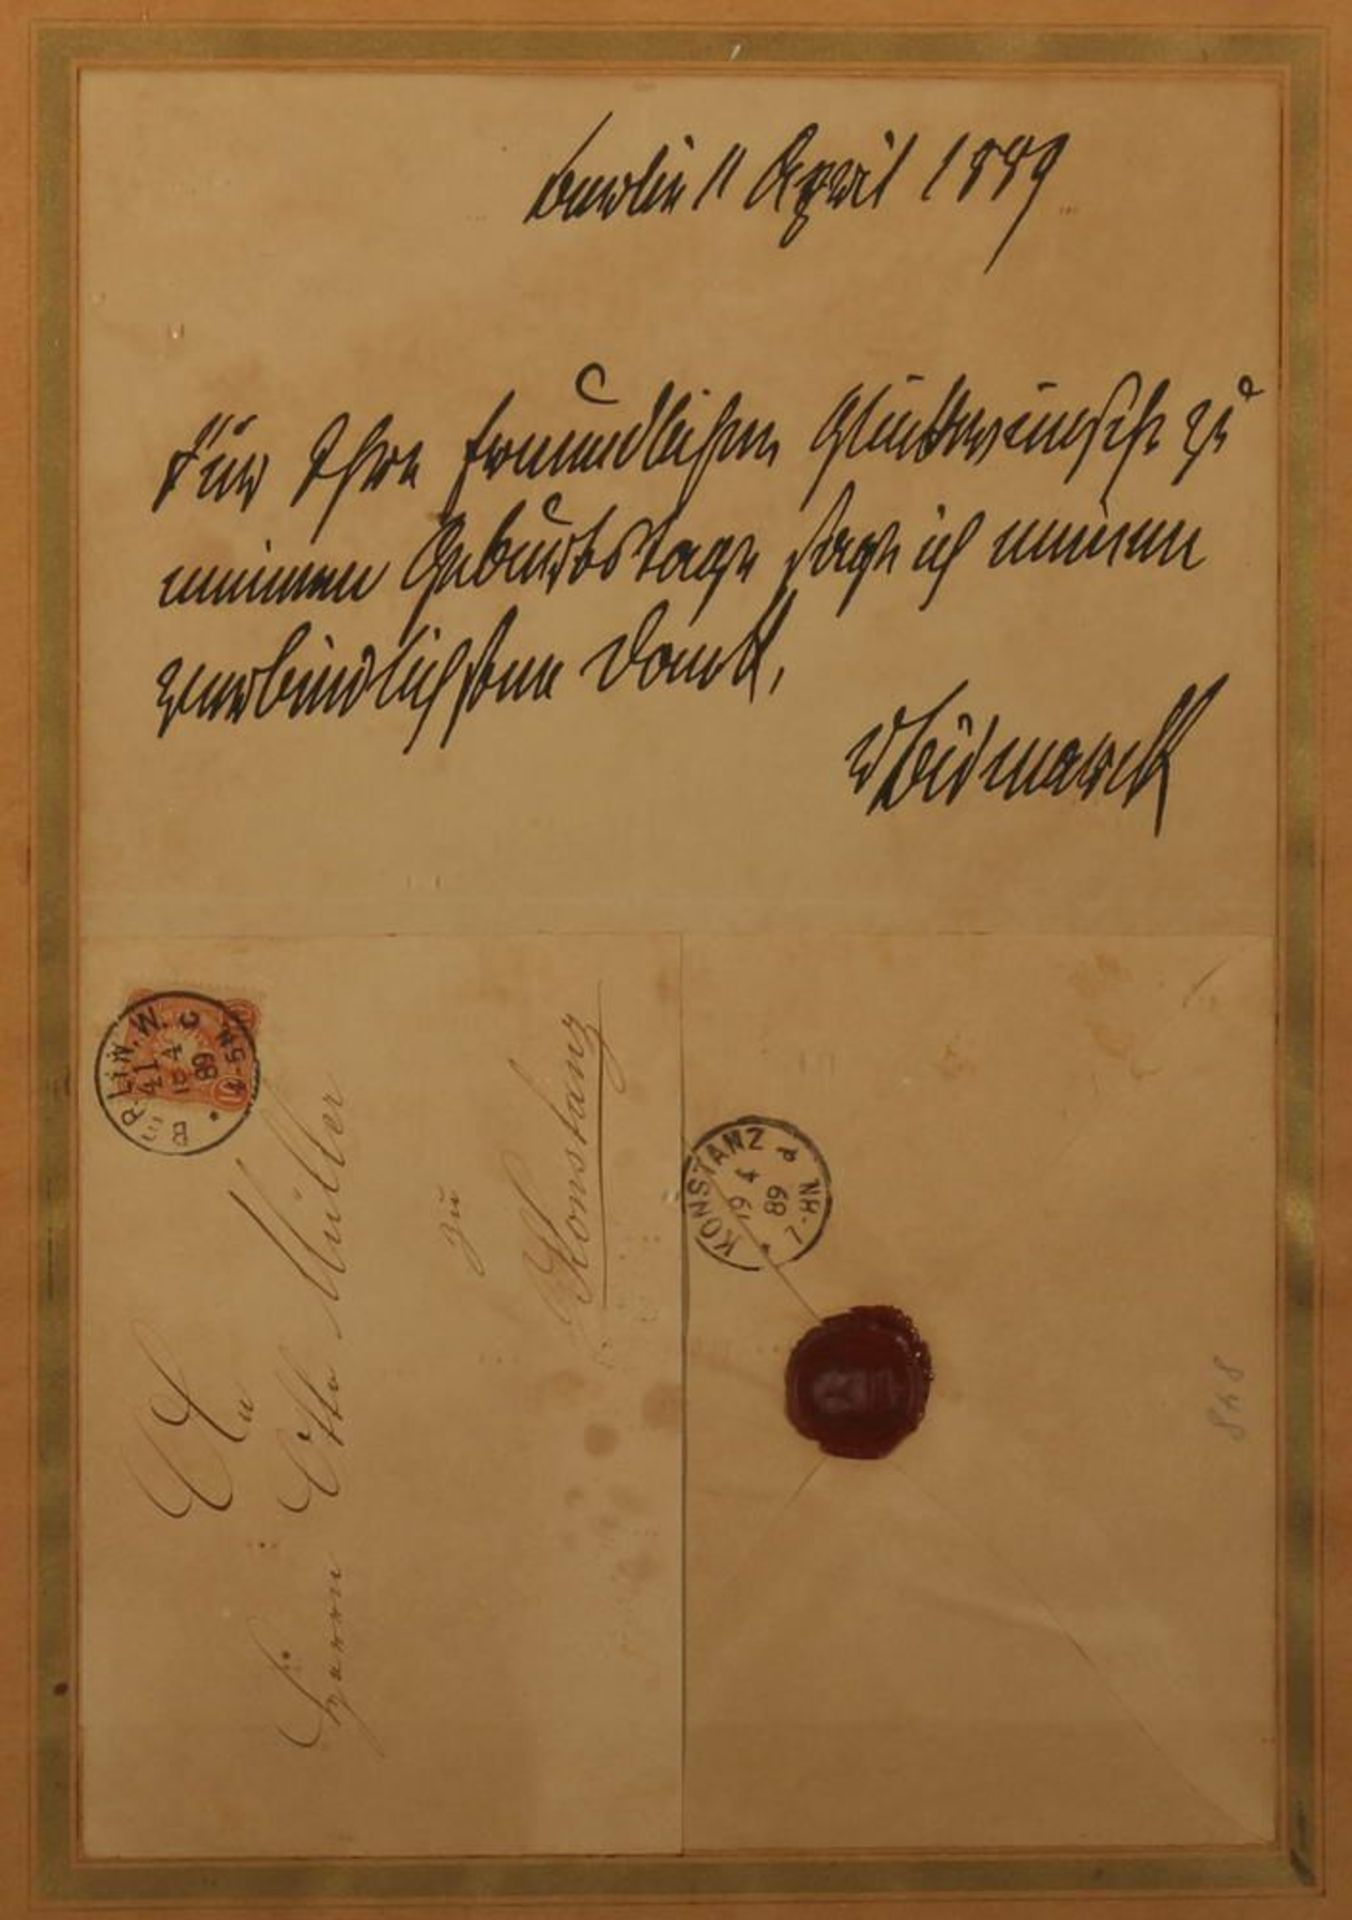 Berlin 11 April 1889
Für Ihre freundlichen Glückwünsche zu
meinem Geburtstage sage ich meinen
verbindlichsten Dank.
v Bismarck
BERLIN, W.
41
4
89
4-5N
An
Herrn Otto Müller
zu
Konstanz
KONSTANZ
19 4
89
7-8N
848